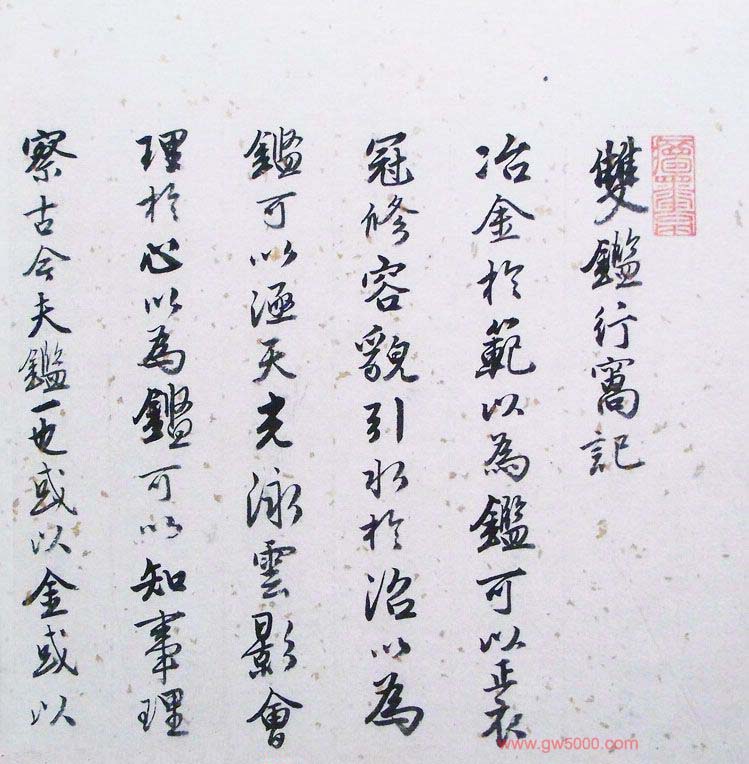 雙鑑行窩記
冶金於範以為鑑可以正衣
冠修容貌引水於沼以為
鑑可以涵天光泳雲影會
理於心以為鑑可以知事理
察古今夫鑑一也或以金或以
www.gw5000.com